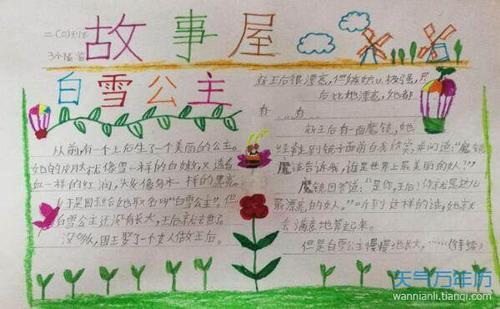 故事屋
白雪公主
从前,有一个王后生了一个美丽的公主。
她的皮肤就像雪一样的白嫩,又透着
血一样的红润,头发像乌木一样的黑亮。
于是国王给她取名叫“白雪公主”,但
白雪公主还没有长大,王后就去世了
没多久,国王娶了一个女人做王后。
新王后很漂亮,但
后比她漂亮,她都
新王后有一面魔镜,她
经常走到镜子面前自我欣赏,并问道:“魔
魔法告诉我,谁是世界上最美丽的女人?”
魔镜回答道:“是你,王后!你就是这儿
最漂亮的女人。”听到这样的话,她就
满意地笑起来。
但是白雪公主慢慢地长大,……(待续)
天气万年历
wannianli.tianqi.com